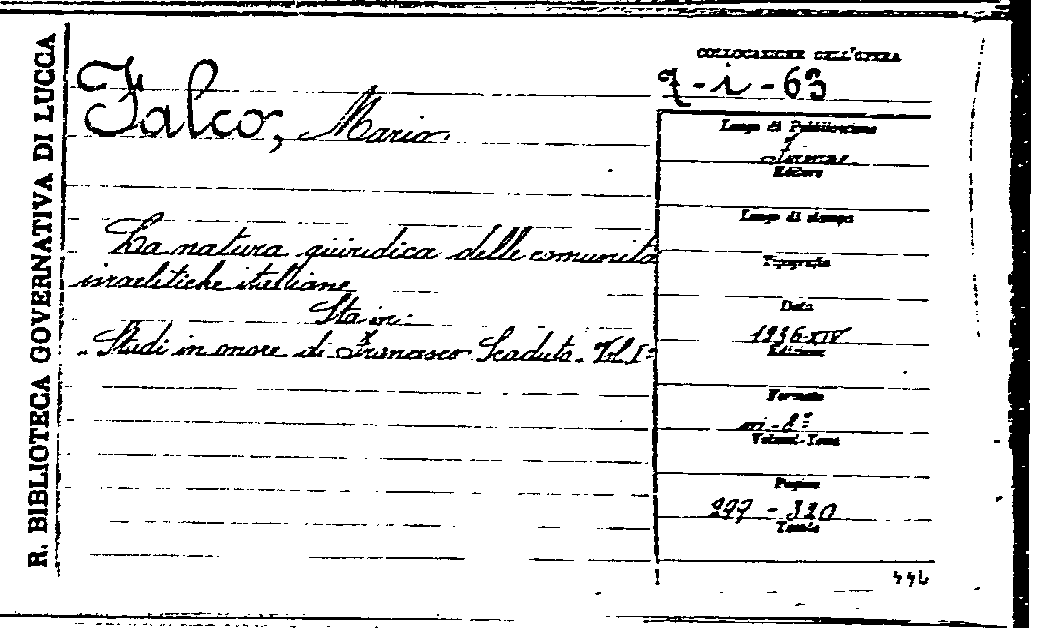 R. BIBLIOTECA GOVERNATIVA DI LUCCA
Falco, Mario
La natura giuridica delle comunità
israelitiche italiane
Sta in:
"Studi in onore di Francesco Scaduto. Vol. I°
COLLOCAZIONE DELL'OPERA
7-i-63
Luogo di Pubblicazione
Editore
Luogo di stampa
Tipografia
Data
1936-XIV
Edizione
Formato
in-8°
Volumi-Tomi
Pagine
297 - 320
Tavole
446